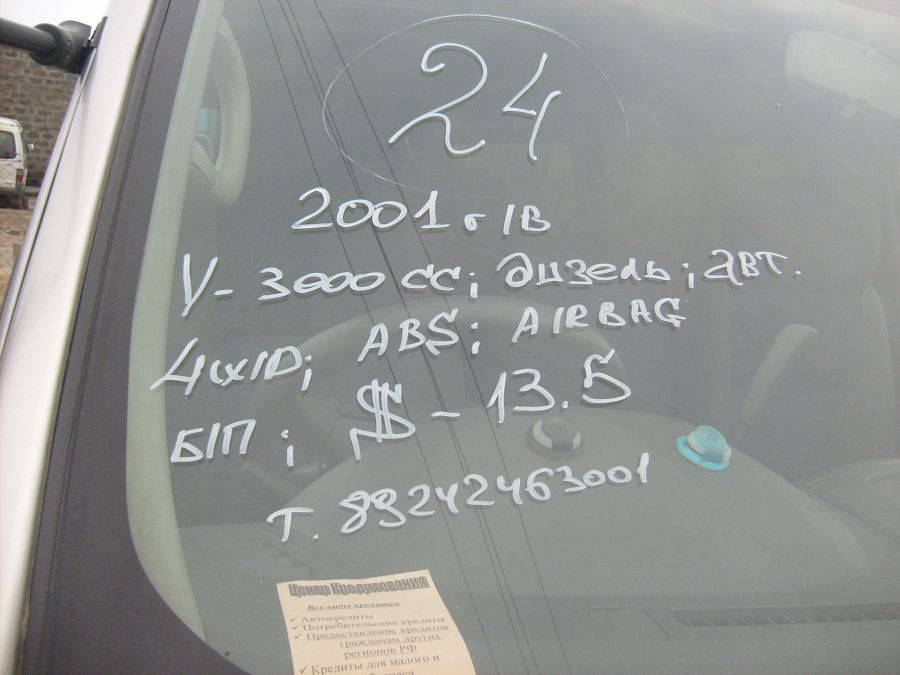 24
2001 г/в
V- 3000 CC; дизель; авт.
4WD; ABS; AIRBAG
Б/П; $ - 13.5
Т. 89242463001
Центр Кредитования
Все виды кредитов
✓ Автокредиты
✓ Потребительские кредиты
✓ Предоставление кредитов
гражданам других
регионов РФ
✓ Кредиты для малого и